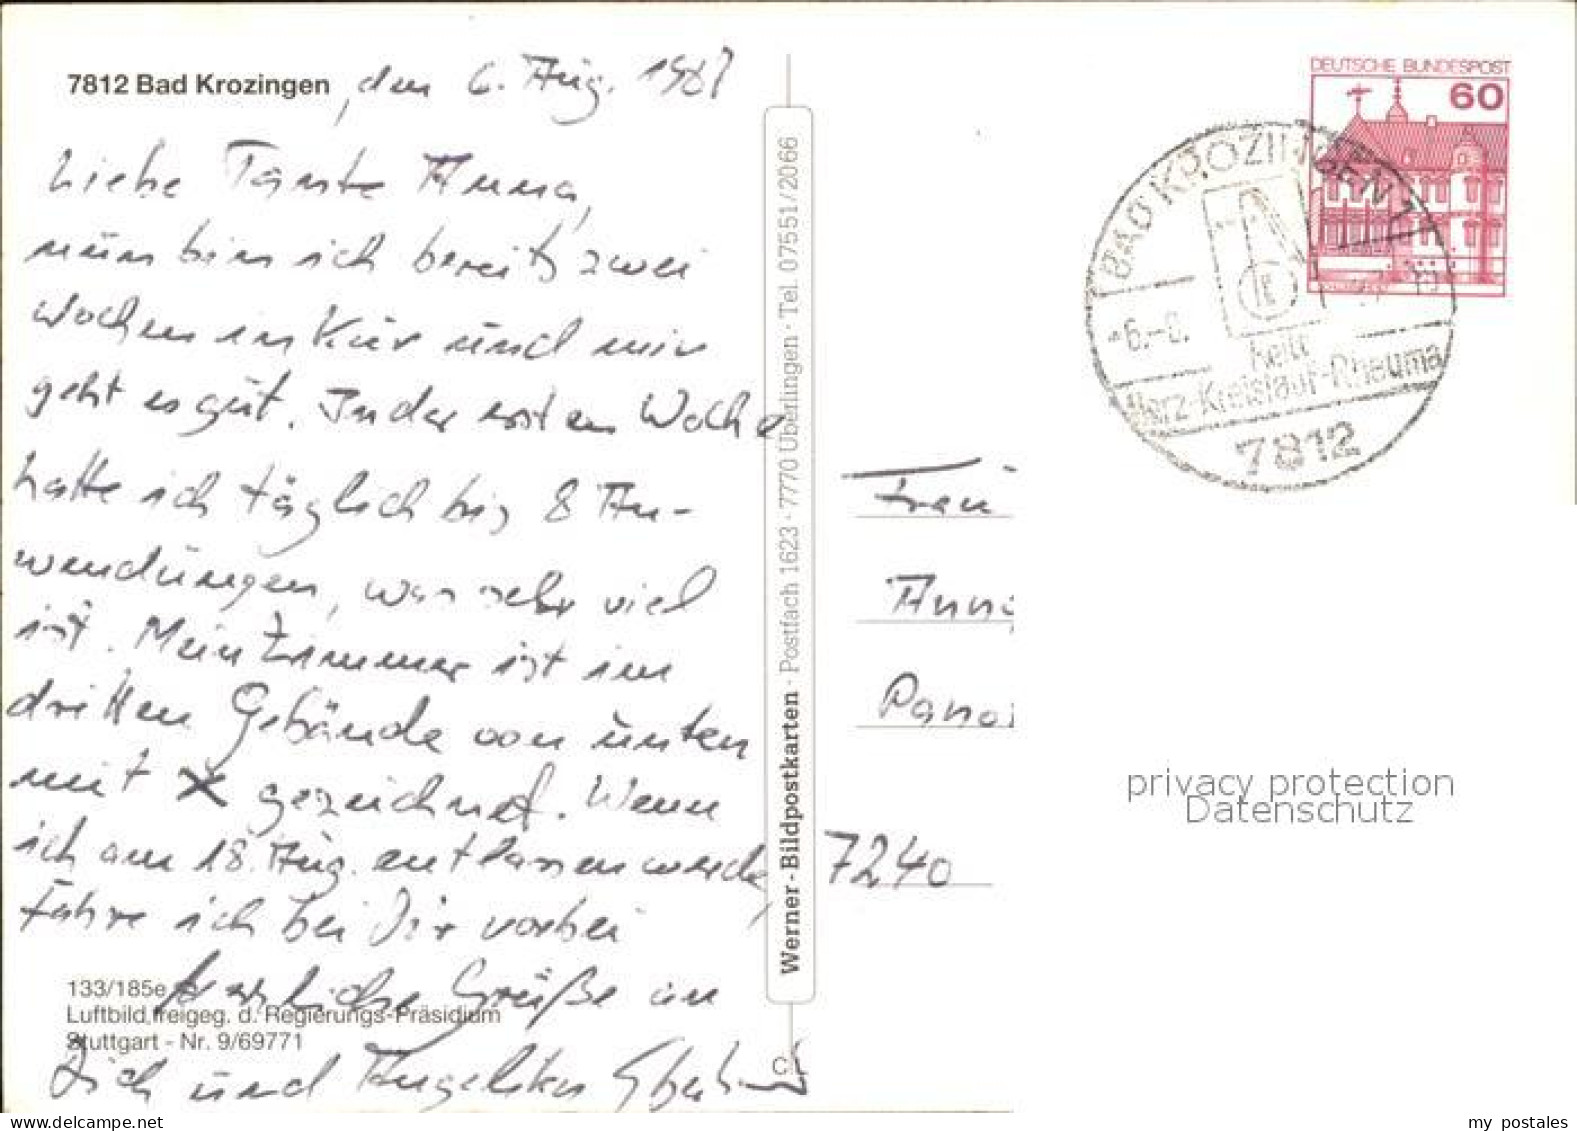 7812 Bad Krozingen, den 6. Aug. 1987
Liebe Tante Anna,
nun bin ich bereits zwei
Wochen in Kur und mir
geht es gut. In der ersten Woche
hatte ich täglich bis 8 An-
wendungen, was sehr viel
ist. Mein Zimmer ist im
dritten Gebäude von unten
mit X gezeichnet. Wenn
ich am 18. Aug. entlassen werde,
fahre ich bei Dir vorbei
Herzliche Grüße an
Dich und Angelika
133/185e
Luftbild freigeg. d. Regierungs-Präsidium
Stuttgart - Nr. 9/69771
Werner-Bildpostkarten · Postfach 1623 · 7770 Überlingen · Tel. 07551/2066
DEUTSCHE BUNDESPOST
60
BAD KROZINGEN 1
-6.-8.
heilt
Herz-Kreislauf-Rheuma
7812
Frau
Anna
Pano
7240
privacy protection
Datenschutz
my postales